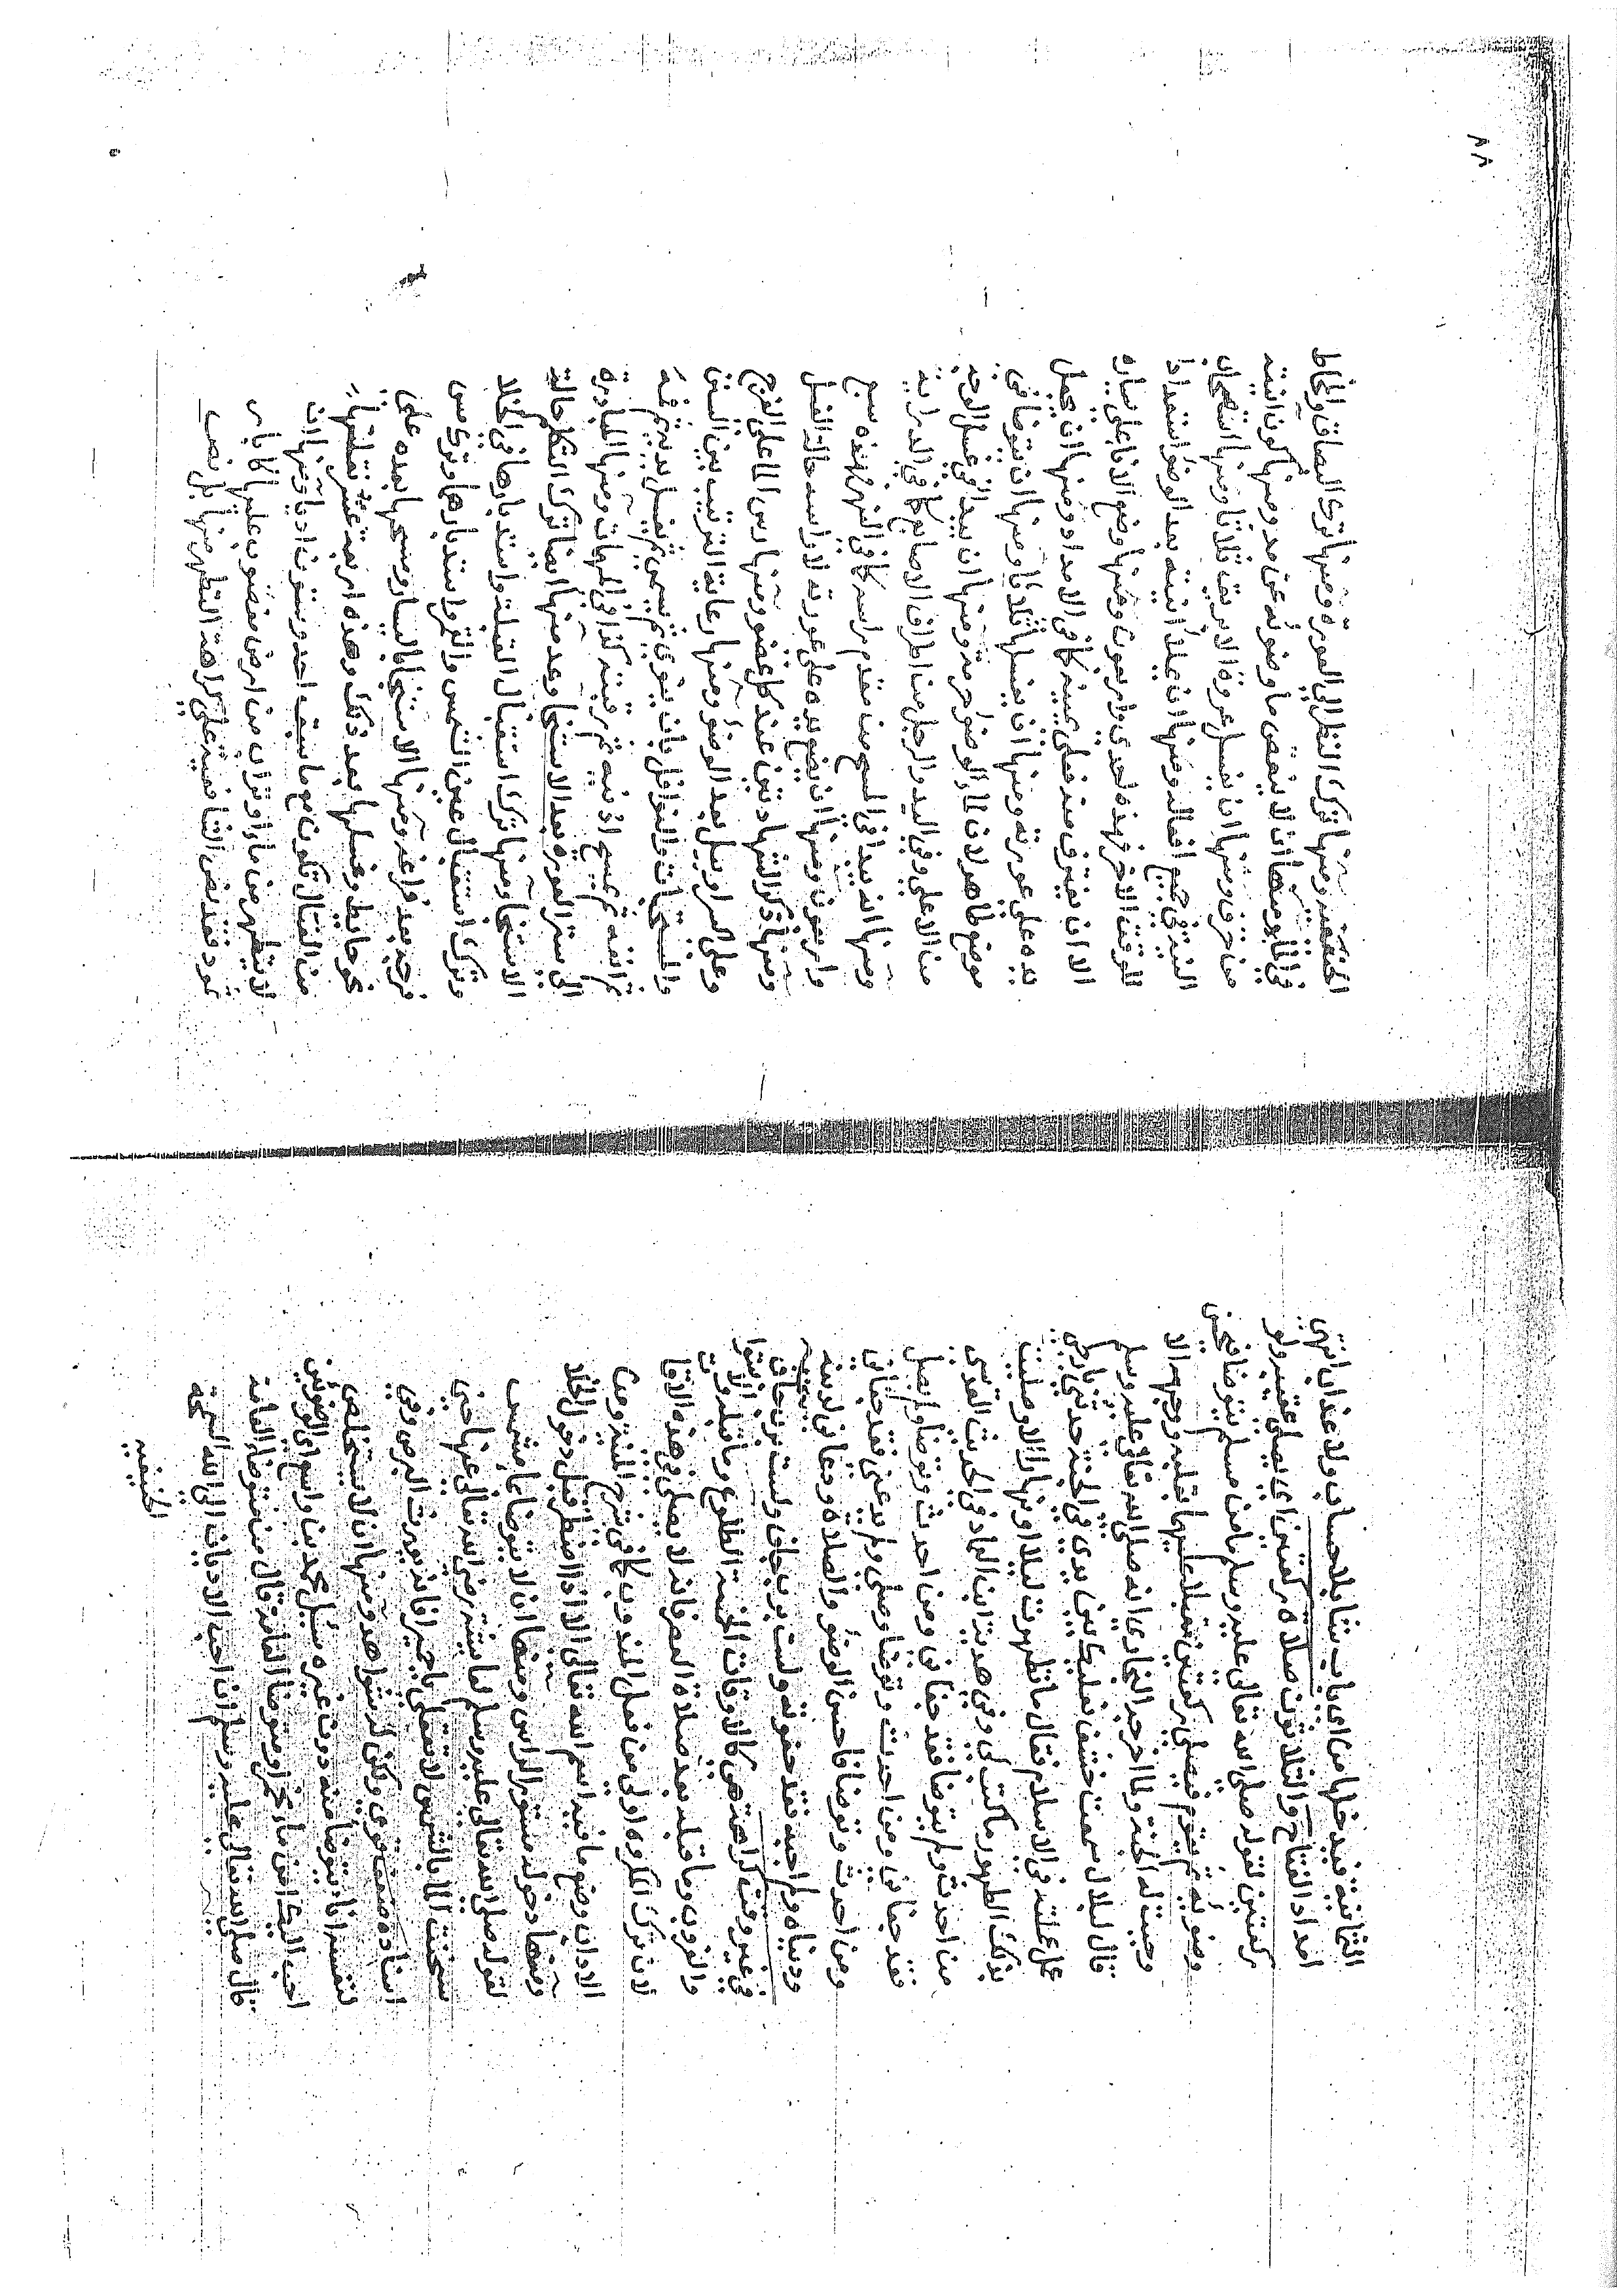 الثمانية فيدخلها من اي باب شا بلا حساب ولا عذاب انتهى
امداد الفتاح والثلاثون صلاة ركعتين اي يصلى عقبه ولو
ركعتين لقوله صلى الله تعالى عليه وسلم ما من مسلم يتوضا فيحسن
وضوئه ثم يقوم فيصلى ركعتين مقبلا عليهما بقلبه ووجهه الا
وجبت له الجنة ولما اخرجه البخارى انه صلى الله تعالى عليه وسلم
قال لبلال سمعت خشف نعليك بين يدى في الجنة حدثنى بارجى
عمل عملته في الاسلام فقال ما تطهرت ليلا او نهارا الا وصليت
بذلك الطهور ما كتب لى وفى هدية ابن العماد في الحديث القدسى
من احدث ولم يتوضا فقد جفانى ومن احدث وتوضا ولم يصل
فقد جفانى ومن احدث وتوضا وصلى ولم يدعنى فقد جفانى
ومن احدث وتوضا فاحسن الوضوء والصلاة ودعانى لدينه
ودنياه ولم اجبه فقد جفوته ولست برب جاف ولست برب جاف
في غير وقت كراهة هى كالاوقات الخمسة الطلوع وما قبله والاستوا
والغروب وما قبله بعد صلاة العصر فانه لا يصلى في هذه الاوقات
لان ترك المكروه اولى من فعل المندوب كما في شرح المنية ومن
الاداب وضع ما فيه اسم الله تعالى الا اذا اضطر قبل دخول الخلا
ومنها دخوله مستور الراس ومنها ان لا يتوضا بما مشمس
لقوله صلى الله تعالى عليه وسلم لعائشة رضى الله تعالى عنها حين
سخنت الماء بالشمس لا تفعلى يا حميرا فانه يورث البرص وفى
اسناده ضعف قوى ويكن له شواهد ومنها ان لا يستخلص
لنفسه انا يتوضا منه دون غيره سئل محمد بن واسع اى الوضوئين
احب اليك من ماء مخمر او متوضا العامة قال من متوضا العامة
قال صلى الله تعالى عليه وسلم ان احب الاديان الى الله السمحة
الحنيفية
الحنيفية ومنها ترك النظر الى العورة ومنها ترك البصاق والمخاط
في الماء ومنها ان لا ينقص ما وضوئه عن مد ومنها كون انيته
من خزف ومنها ان يغسل عروة الابريق ثلاثا ومنها استصحاب
النية في جميع افعاله ومنها ان يملا انيته بعد الوضوء استعدادا
للوقت الاخر فهذه احدى واربعون ومنها وضع الاناء على يساره
الا ان يغترف منه فعلى يمينه كما في الامداد ومنها ان يجعل
يده على عروته ومنها ان يغسلها ثلاثا ومنها ان يتوضا فى
موضع طاهر لان لماء الوضوء حرمة ومنها ان يبدا في غسل الوجه
من الاعلى وفي اليد والرجل من اطراف الاصابع كما في الدراية
ومنها انه يبدا في المسح من مقدم راسه كما في النهر فهذه سبع
واربعون ومنها ان يضع يده على عورته لا راسه حال الغسل
ومنها ذكر الشهادتين عند كل عضو ومنها رش الماء على الفرج
وعلى السراويل بعد الوضوء ومنها رعاية الترتيب بين السنن
والمستحبات والنوافل بان ينوى ثم يسمى ثم يغسل يديه ثم فمه
ثم انفه ثم يمسح اذنيه ثم رقبته كذا في المهمات ومنها المبادرة
الى ستر العورة بعد الاستنجا وعد منها ايضا ترك التكلم حالة
الاستنجا ومنها ترك استقبال القبلة واستدبارها في الخلا
وترك استقبال عين الشمس والقمر واستدبارها وترك مس
فرجه بعد فراغه ومنها الاستنجا باليسار ومسحها بعده على
نحو حائط وغسلها بعد ذلك وهذه اربعة عشر نقلتها
من القتال تكون مع ما سبق احد وستون ادبا ومنها ان
لا يتطهر من ماء او تراب من ارض مغضوب عليها كآبار
ثمود فقد نص الشافعية على كراهة التطهر منها بل نص